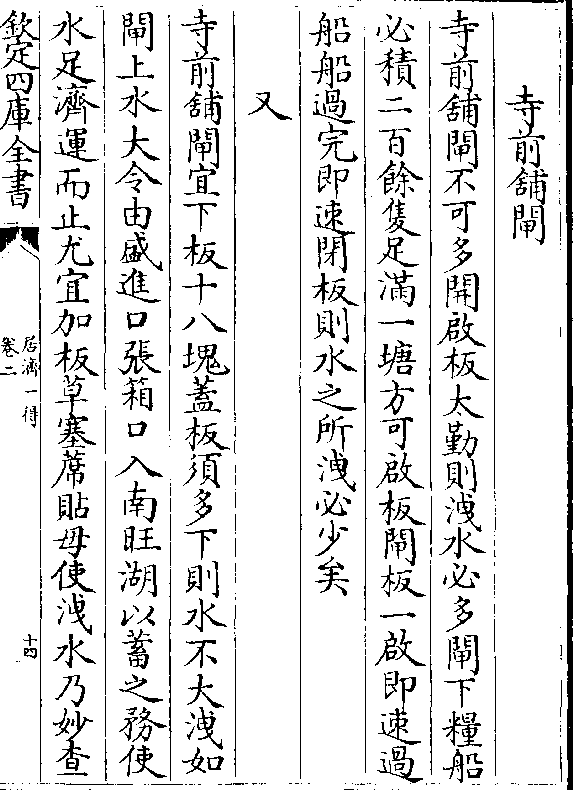 寺前舖閘
寺前舖閘不可多開啟板太勤則洩水必多閘下糧船
必積二百餘隻足滿一塘方可啟板閘板一啟即速過
船船過完即速閉板則水之所洩必少矣
又
寺前舖閘宜下板十八塊蓋板須多下則水不大洩如
閘上水大令由盛進口張箱口入南旺湖以蓄之務使
水足濟運而止尤宜加板草塞蓆貼毋使洩水乃妙查
欽定四庫全書
居濟一得
卷二
十四